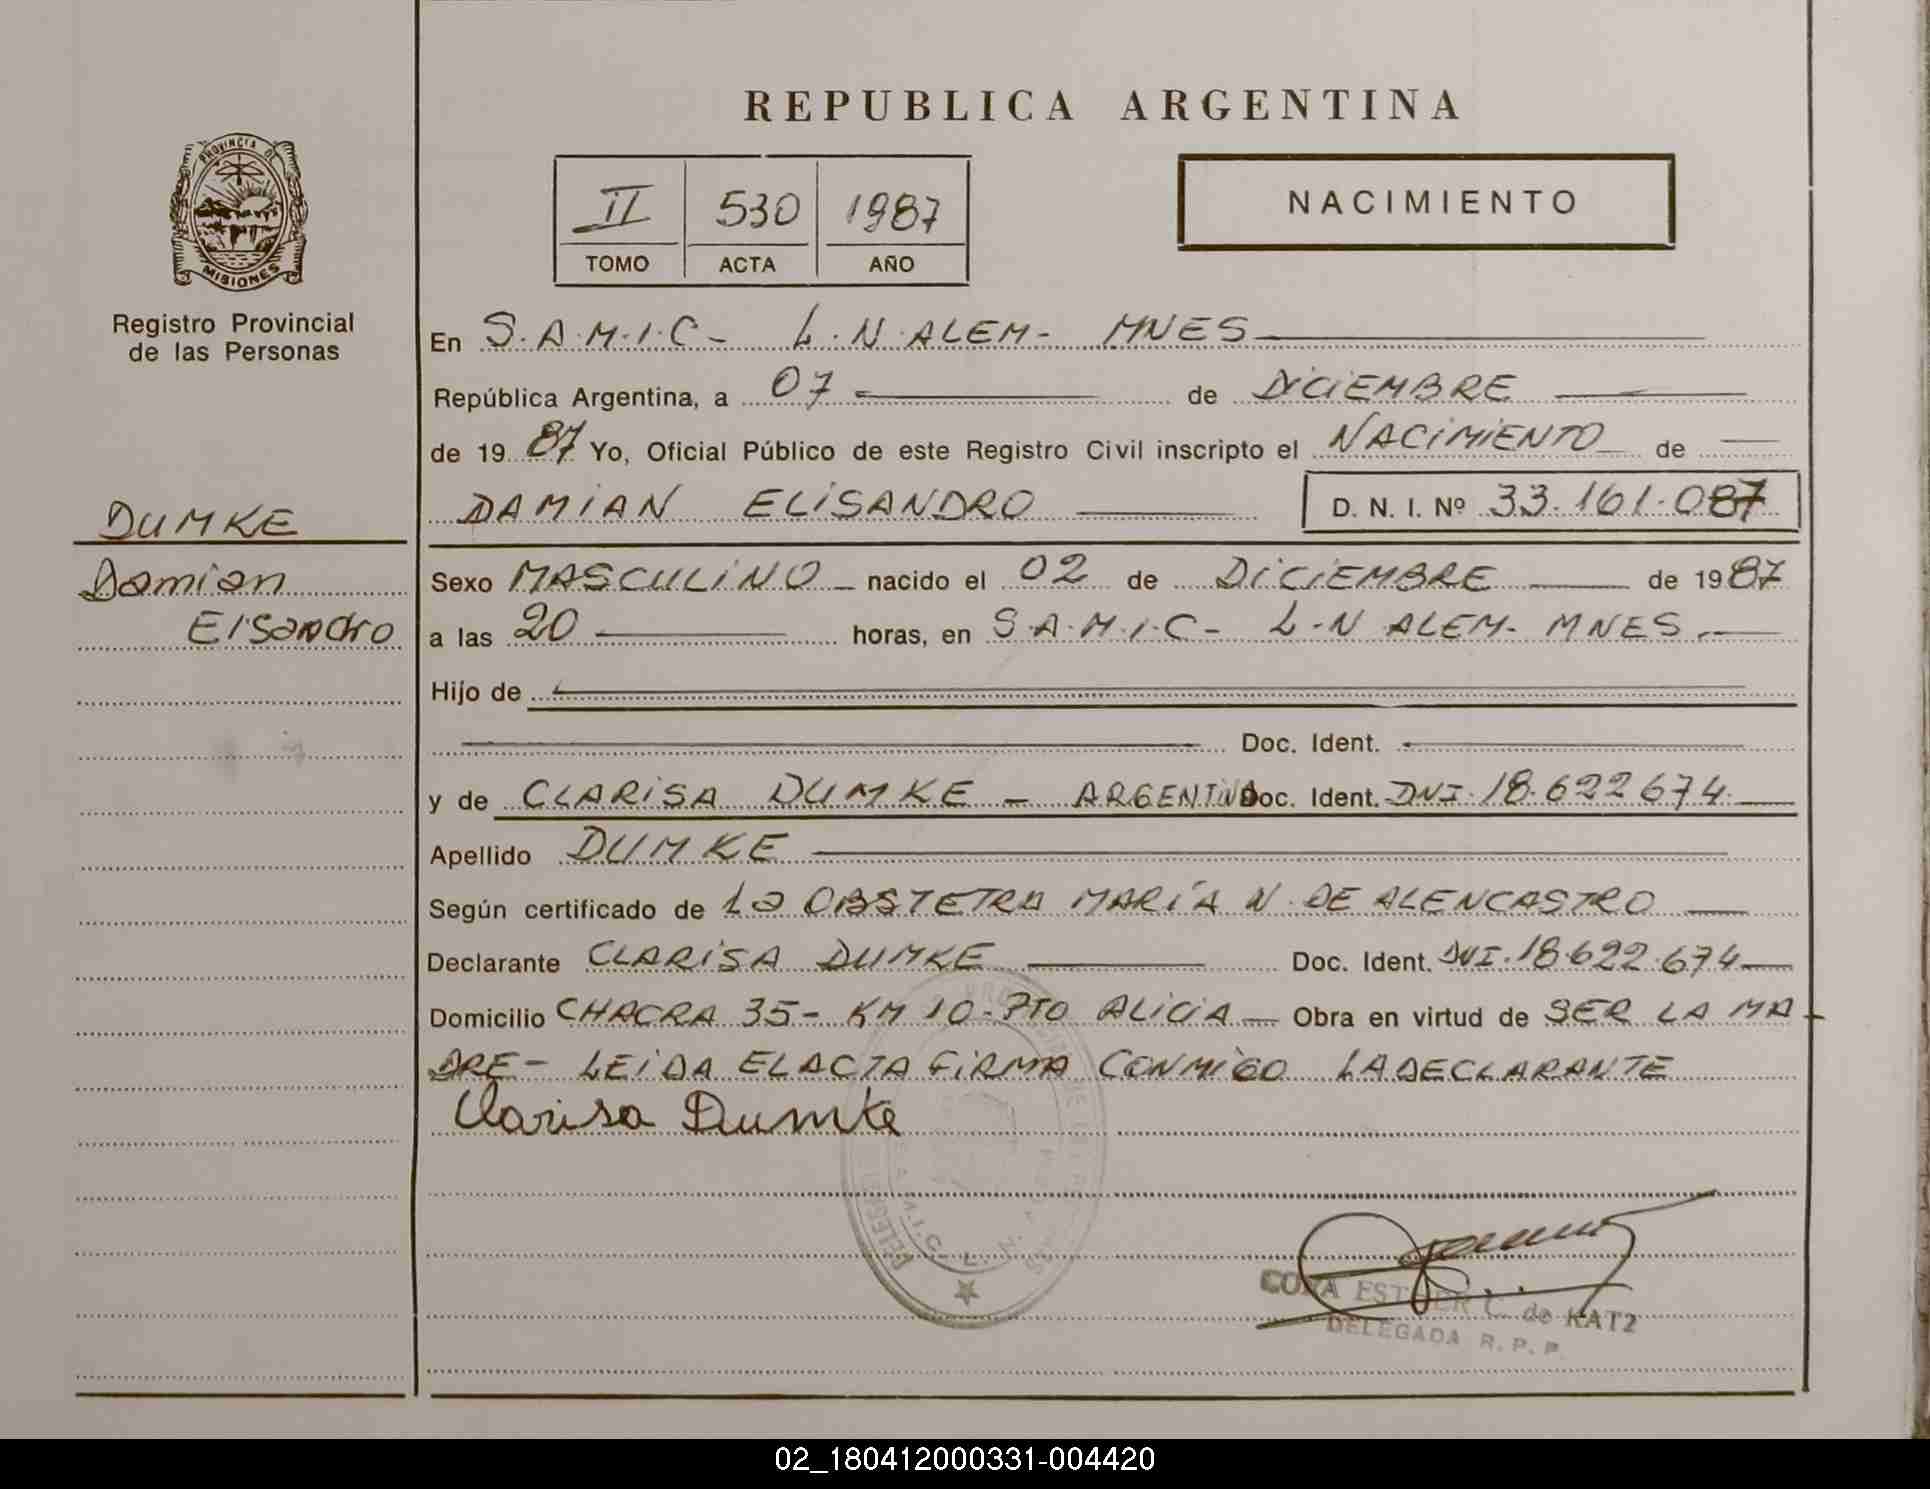 REPUBLICA ARGENTINA
PROVINCIA DE
MISIONES
Registro Provincial
de las Personas
II 530 1987
TOMO ACTA AÑO
NACIMIENTO
En S.A.M.I.C- L.N.ALEM- MNES
República Argentina, a 07 de DICIEMBRE
de 1987 Yo, Oficial Público de este Registro Civil inscripto el NACIMIENTO de
DAMIAN ELISANDRO D. N. I. Nº 33.161.087
DUMKE
Damian
Elsandro
Sexo MASCULINO nacido el 02 de DICIEMBRE de 1987
a las 20 horas, en S.A.M.I.C- L.N ALEM- MNES.
Hijo de
Doc. Ident.
y de CLARISA DUMKE - ARGENTINA Doc. Ident. DNI.18.622674.
Apellido DUMKE
Según certificado de La OBSTETRA MARÍA N. DE ALENCASTRO
Declarante CLARISA DUMKE Doc. Ident. DNI.18.622.674
Domicilio CHACRA 35- KM 10-PTO ALICIA Obra en virtud de SER LA MA
DRE- LEIDA EL ACTA FIRMA CONMIGO LA DECLARANTE
Clarisa Dumke
S.A.M.I.C. L. N.
CORA ESTHER C. de KATZ
DELEGADA R. P. P.
02_180412000331-004420